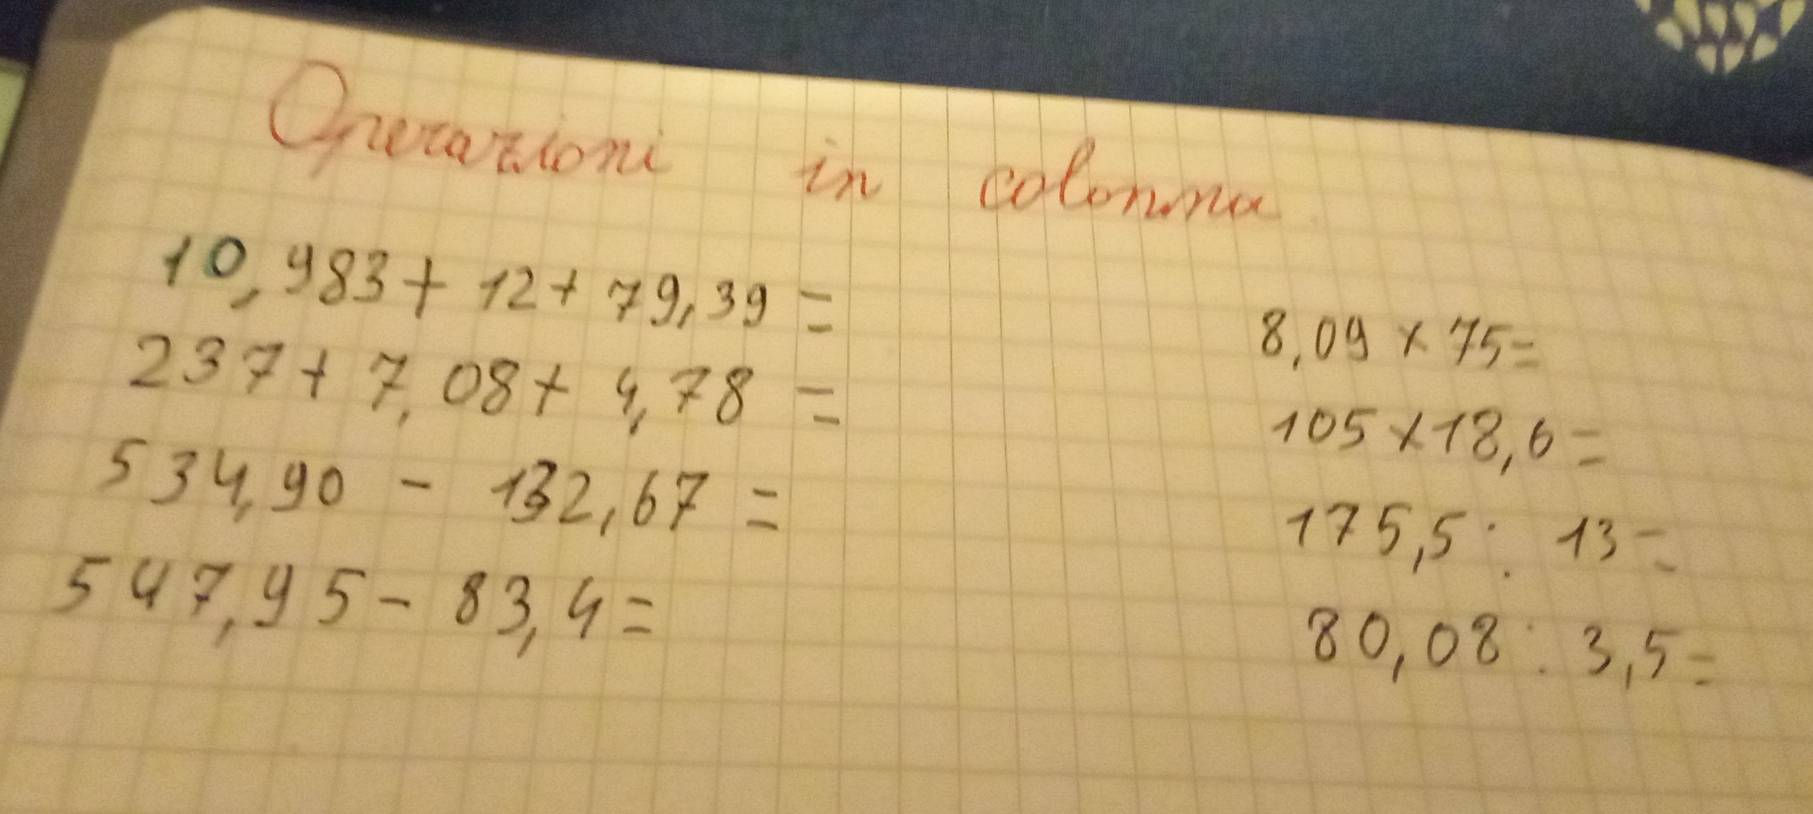 Operazioni in colonna
10,983+ 12+ 79,39 =
237+ 7,08+ 4,78 =
534,90 - 132,67 =
547,95- 83,4=
8,09 x 75=
105 x 18,6 =
175,5 : 13=
80,08 : 3,5=